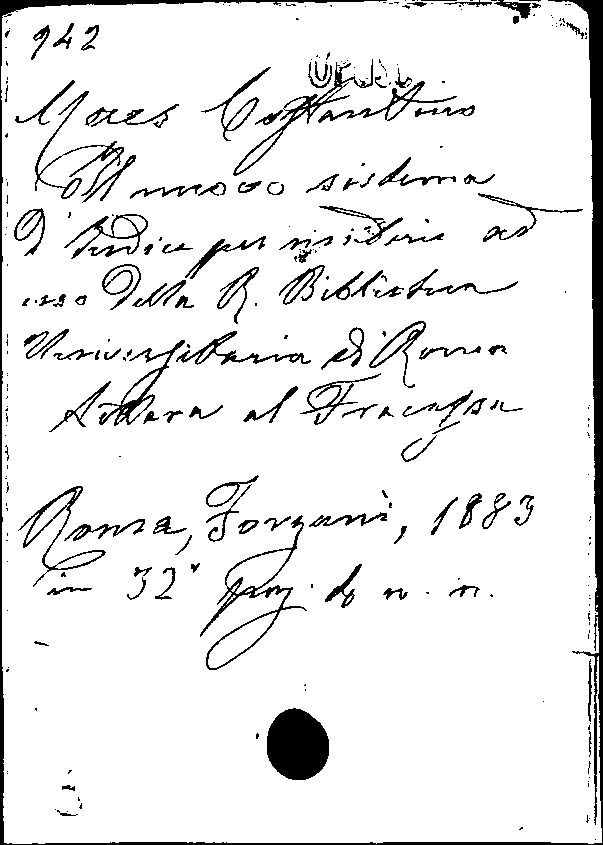 942
Maes Costantino
Il nuovo sistema
d'Indice per materie ad
uso della R. Biblioteca
Universitaria di Roma
Lettera al Fracassa
Roma, Forzani, 1883
in 32° pag. n. n.